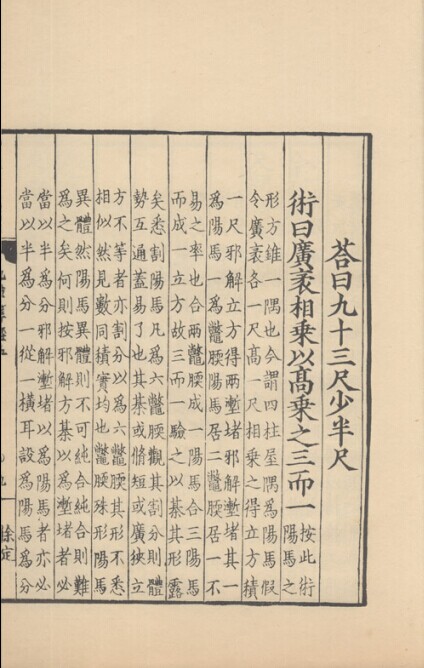 荅曰九十三尺少半尺
術曰廣袤相乗以髙乗之三而一
按此術
陽馬之
形方錐一隅也今謂四柱屋隅爲陽馬假
令廣袤各一尺髙一尺相乗之得立方積
一尺邪解立方得兩壍堵邪解壍堵其一
爲陽馬一爲鼈腰陽馬居二鼈腰居一不
易之率也合兩鼈腰成一陽馬合三陽馬
而成一立方故三而一驗之以棊其形露
矣悉割陽馬凡爲六鼈腰觀其割分則體
勢互通蓋易了也其棊或脩短或廣狹立
方不等者亦割分以爲六鼈腰其形不悉
相似然見數同積實均也鼈腰殊形陽馬
異體然陽馬異體則不可純合純合則難
爲之矣何則按邪解方棊以爲壍堵者必
當以半爲分邪解壍堵以爲陽馬者亦必
當以半爲分一從一橫耳設爲陽馬爲分
徐定